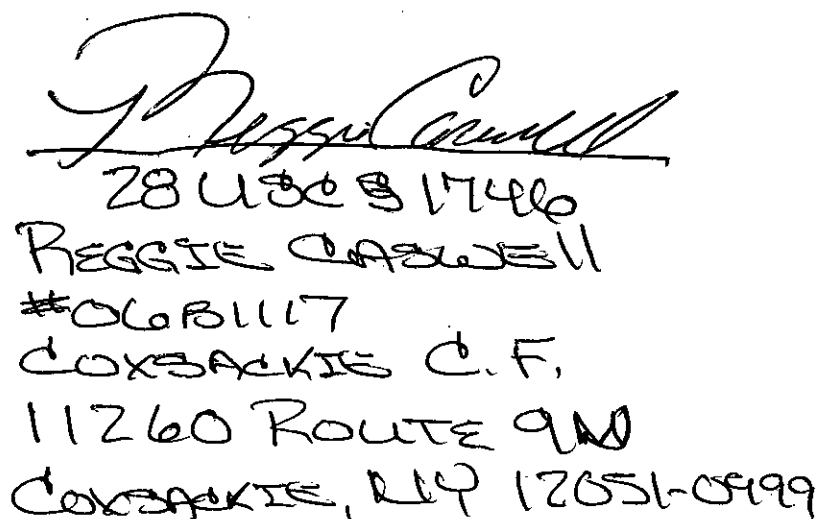 Reggie Caswell
28 USC § 1746
REGGIE CASWELL
#06B1117
COXSACKIE C.F.
11260 ROUTE 9W
COXSACKIE, NY 12051-0999